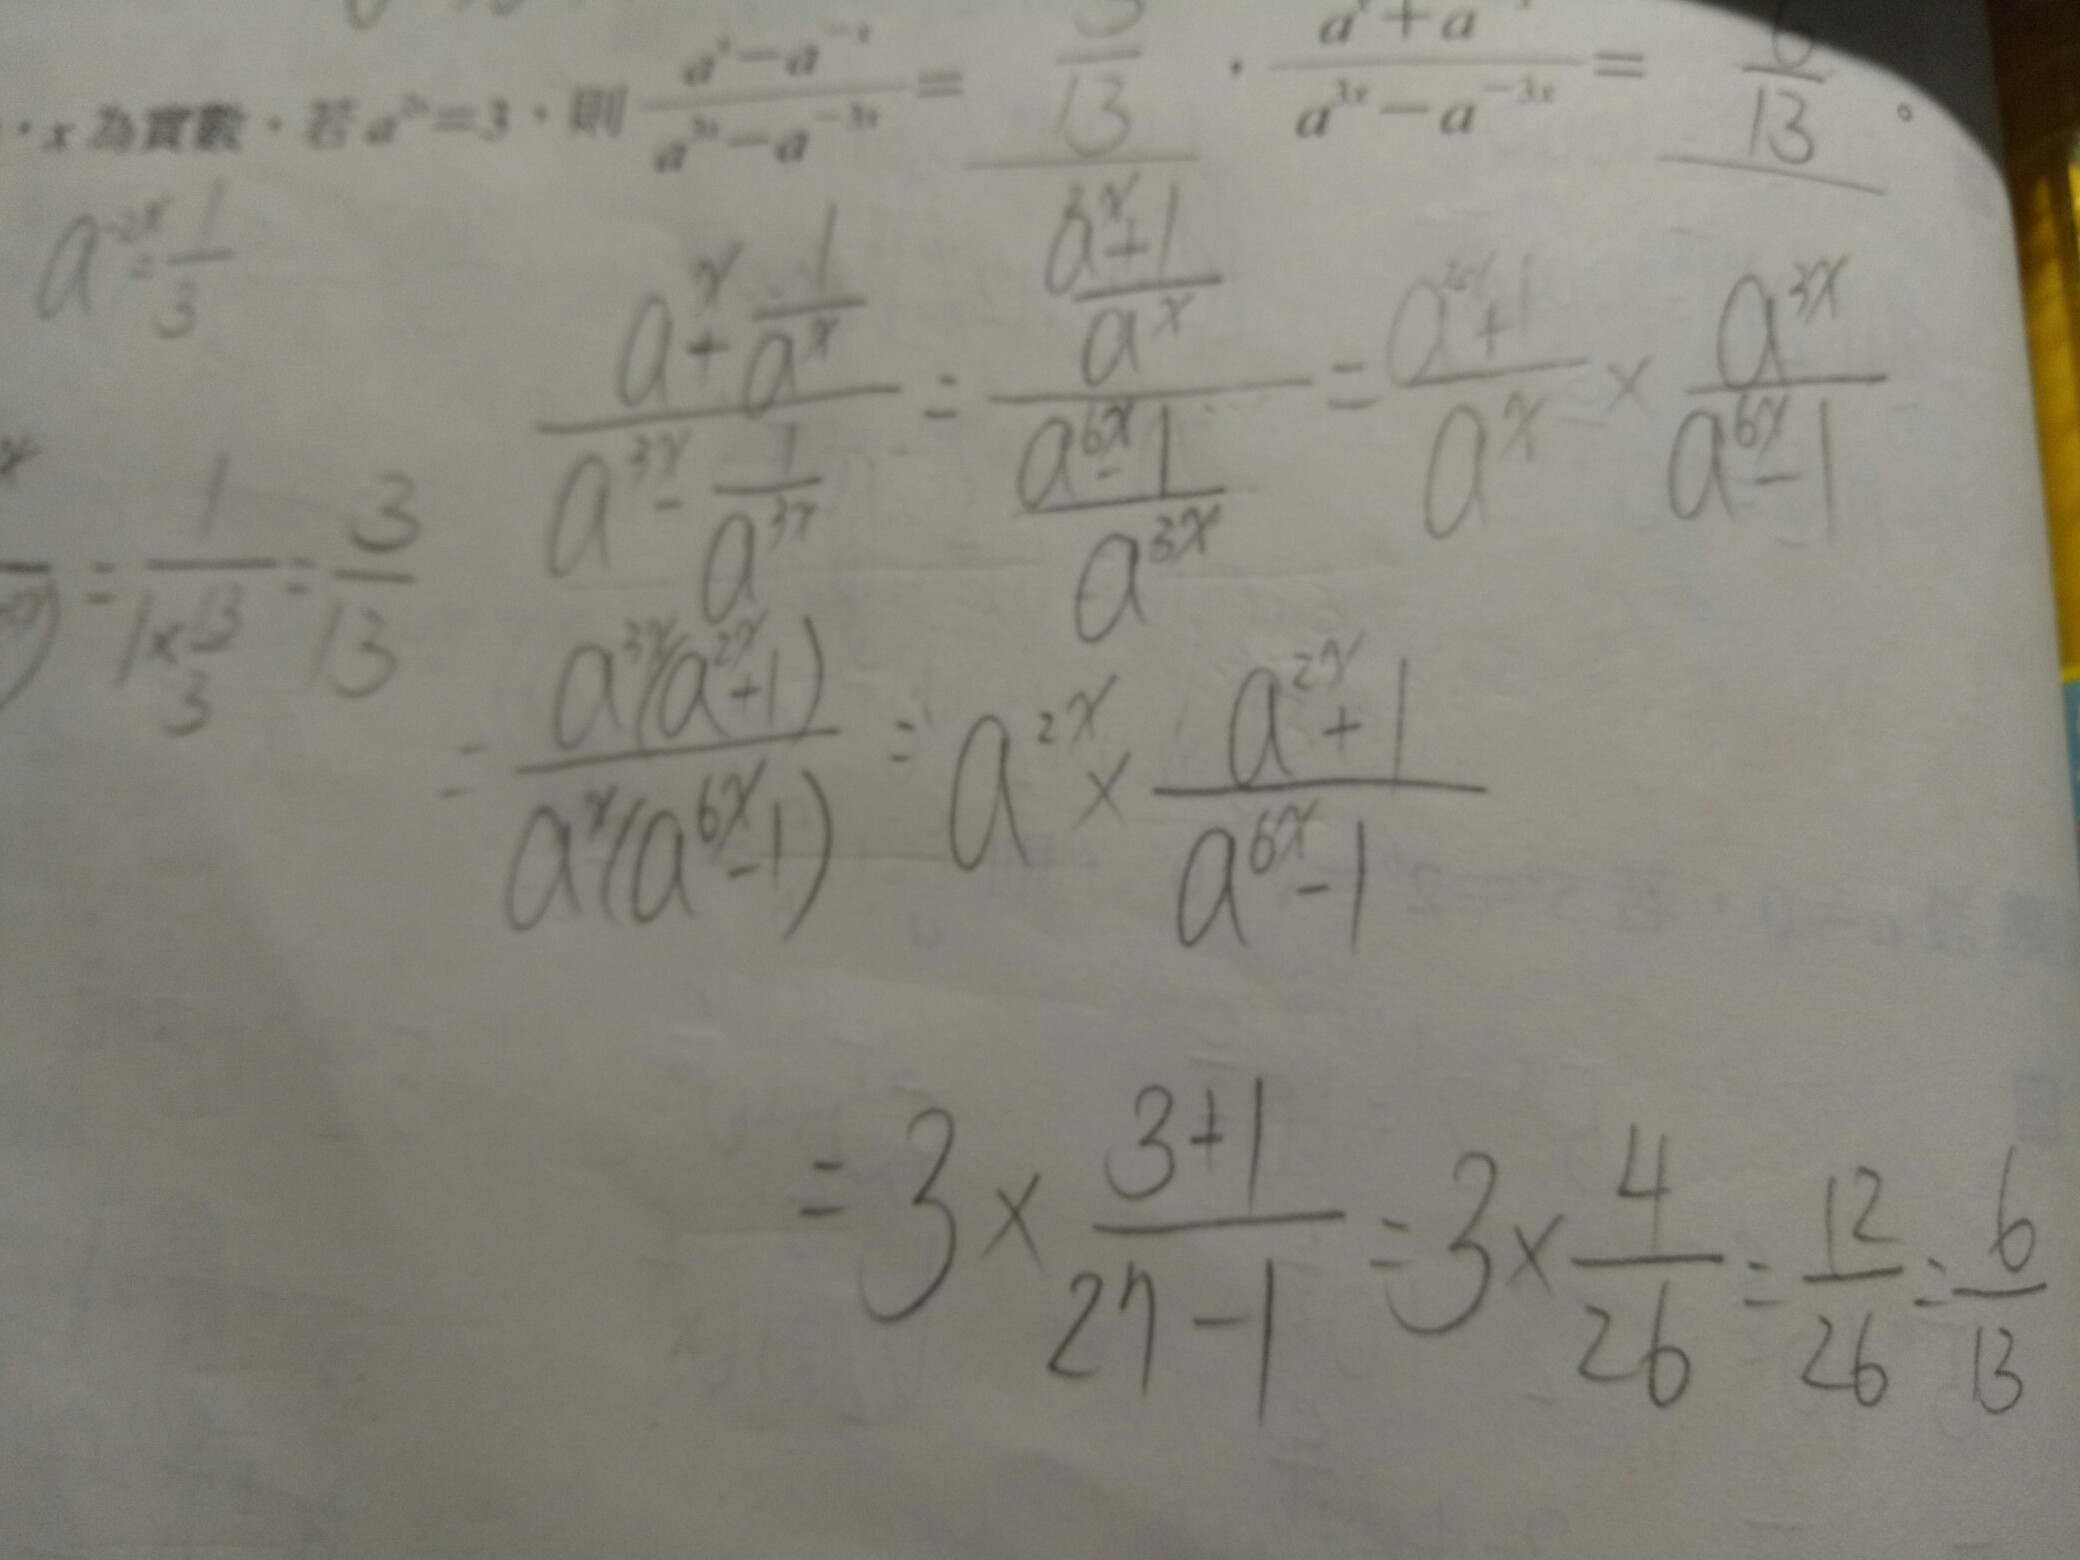 x 為實數，若 a^{2x}=3，則 \frac{a^x-a^{-x}}{a^{3x}-a^{-3x}}= \frac{3}{13} ，\frac{a^x+a^{-x}}{a^{3x}-a^{-3x}}= \frac{6}{13} 。
a^{-2x}=\frac{1}{3}
= \frac{1}{1×\frac{13}{3}} = \frac{3}{13}
\frac{a^x+\frac{1}{a^x}}{a^{3x}-\frac{1}{a^{3x}}} = \frac{\frac{a^{2x}+1}{a^x}}{\frac{a^{6x}-1}{a^{3x}}} = \frac{a^{2x}+1}{a^x} × \frac{a^{3x}}{a^{6x}-1}
= \frac{a^{3x}(a^{2x}+1)}{a^x(a^{6x}-1)} = a^{2x} × \frac{a^{2x}+1}{a^{6x}-1}
= 3 × \frac{3+1}{27-1} = 3 × \frac{4}{26} = \frac{12}{26} = \frac{6}{13}